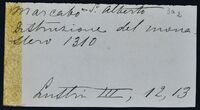 Marcabò S. Alberto
Distruzione del mona
stero 1310
Lustri III, 12, 13